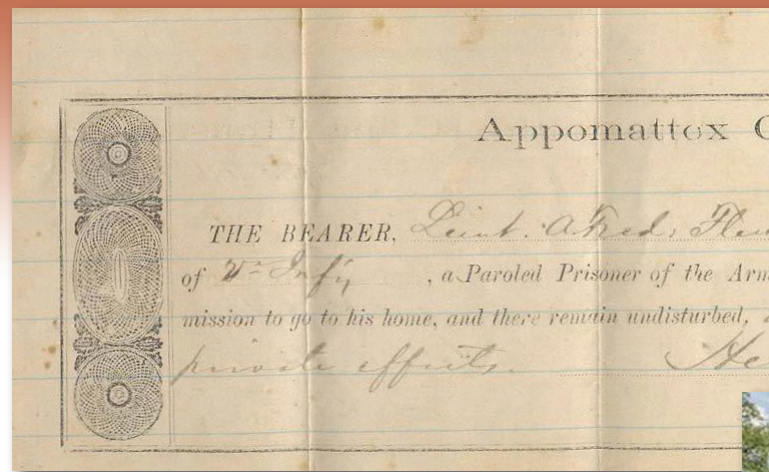 Appomattox C
THE BEARER, Lieut. A Fred. Flem
of Infy , a Paroled Prisoner of the Arm
mission to go to his home, and there remain undisturbed,
private effects. He